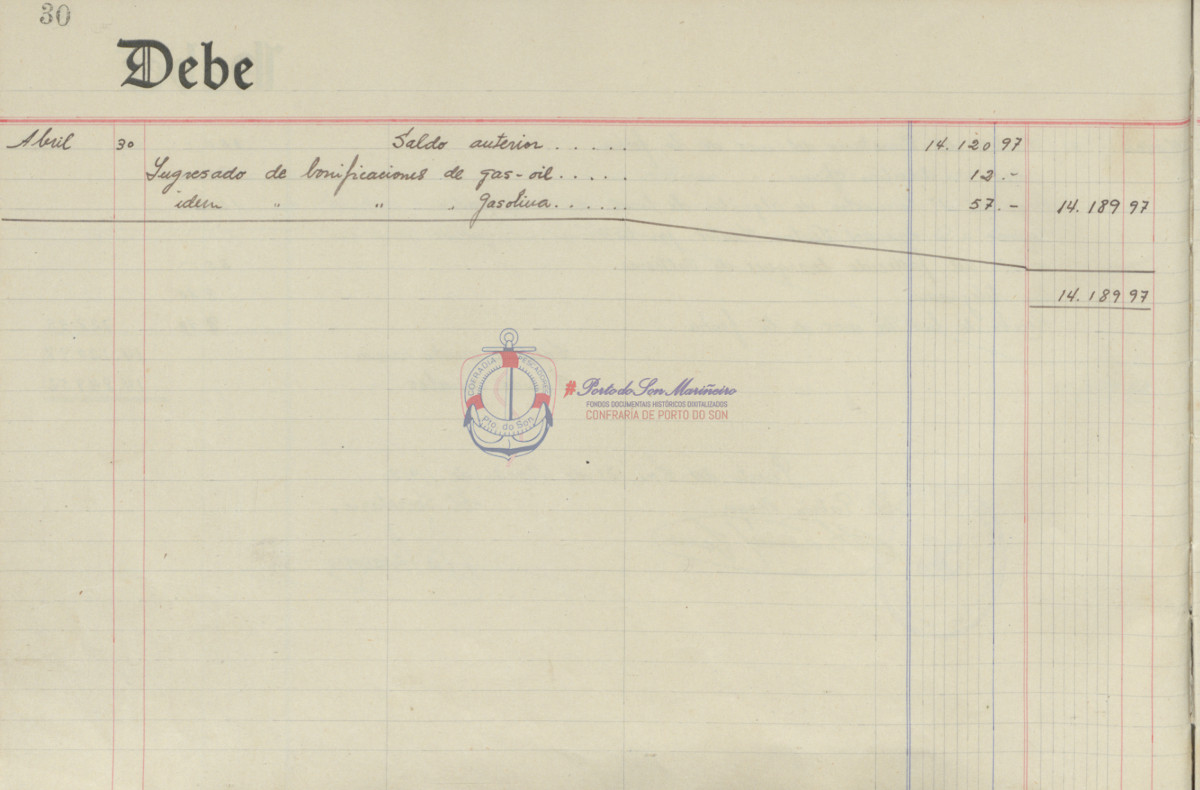 30
Debe
Abril 30 Saldo anterior...... 14.120 97
Ingresado de bonificaciones de gas-oil..... 12.-
idem " " " Gasolina...... 57.- 14.189 97
14.189 97
COFRADIA PESCADORES
Pto. do Son
#Porto do Son Mariñeiro
FONDOS DOCUMENTAIS HISTÓRICOS DIXITALIZADOS
CONFRARÍA DE PORTO DO SON